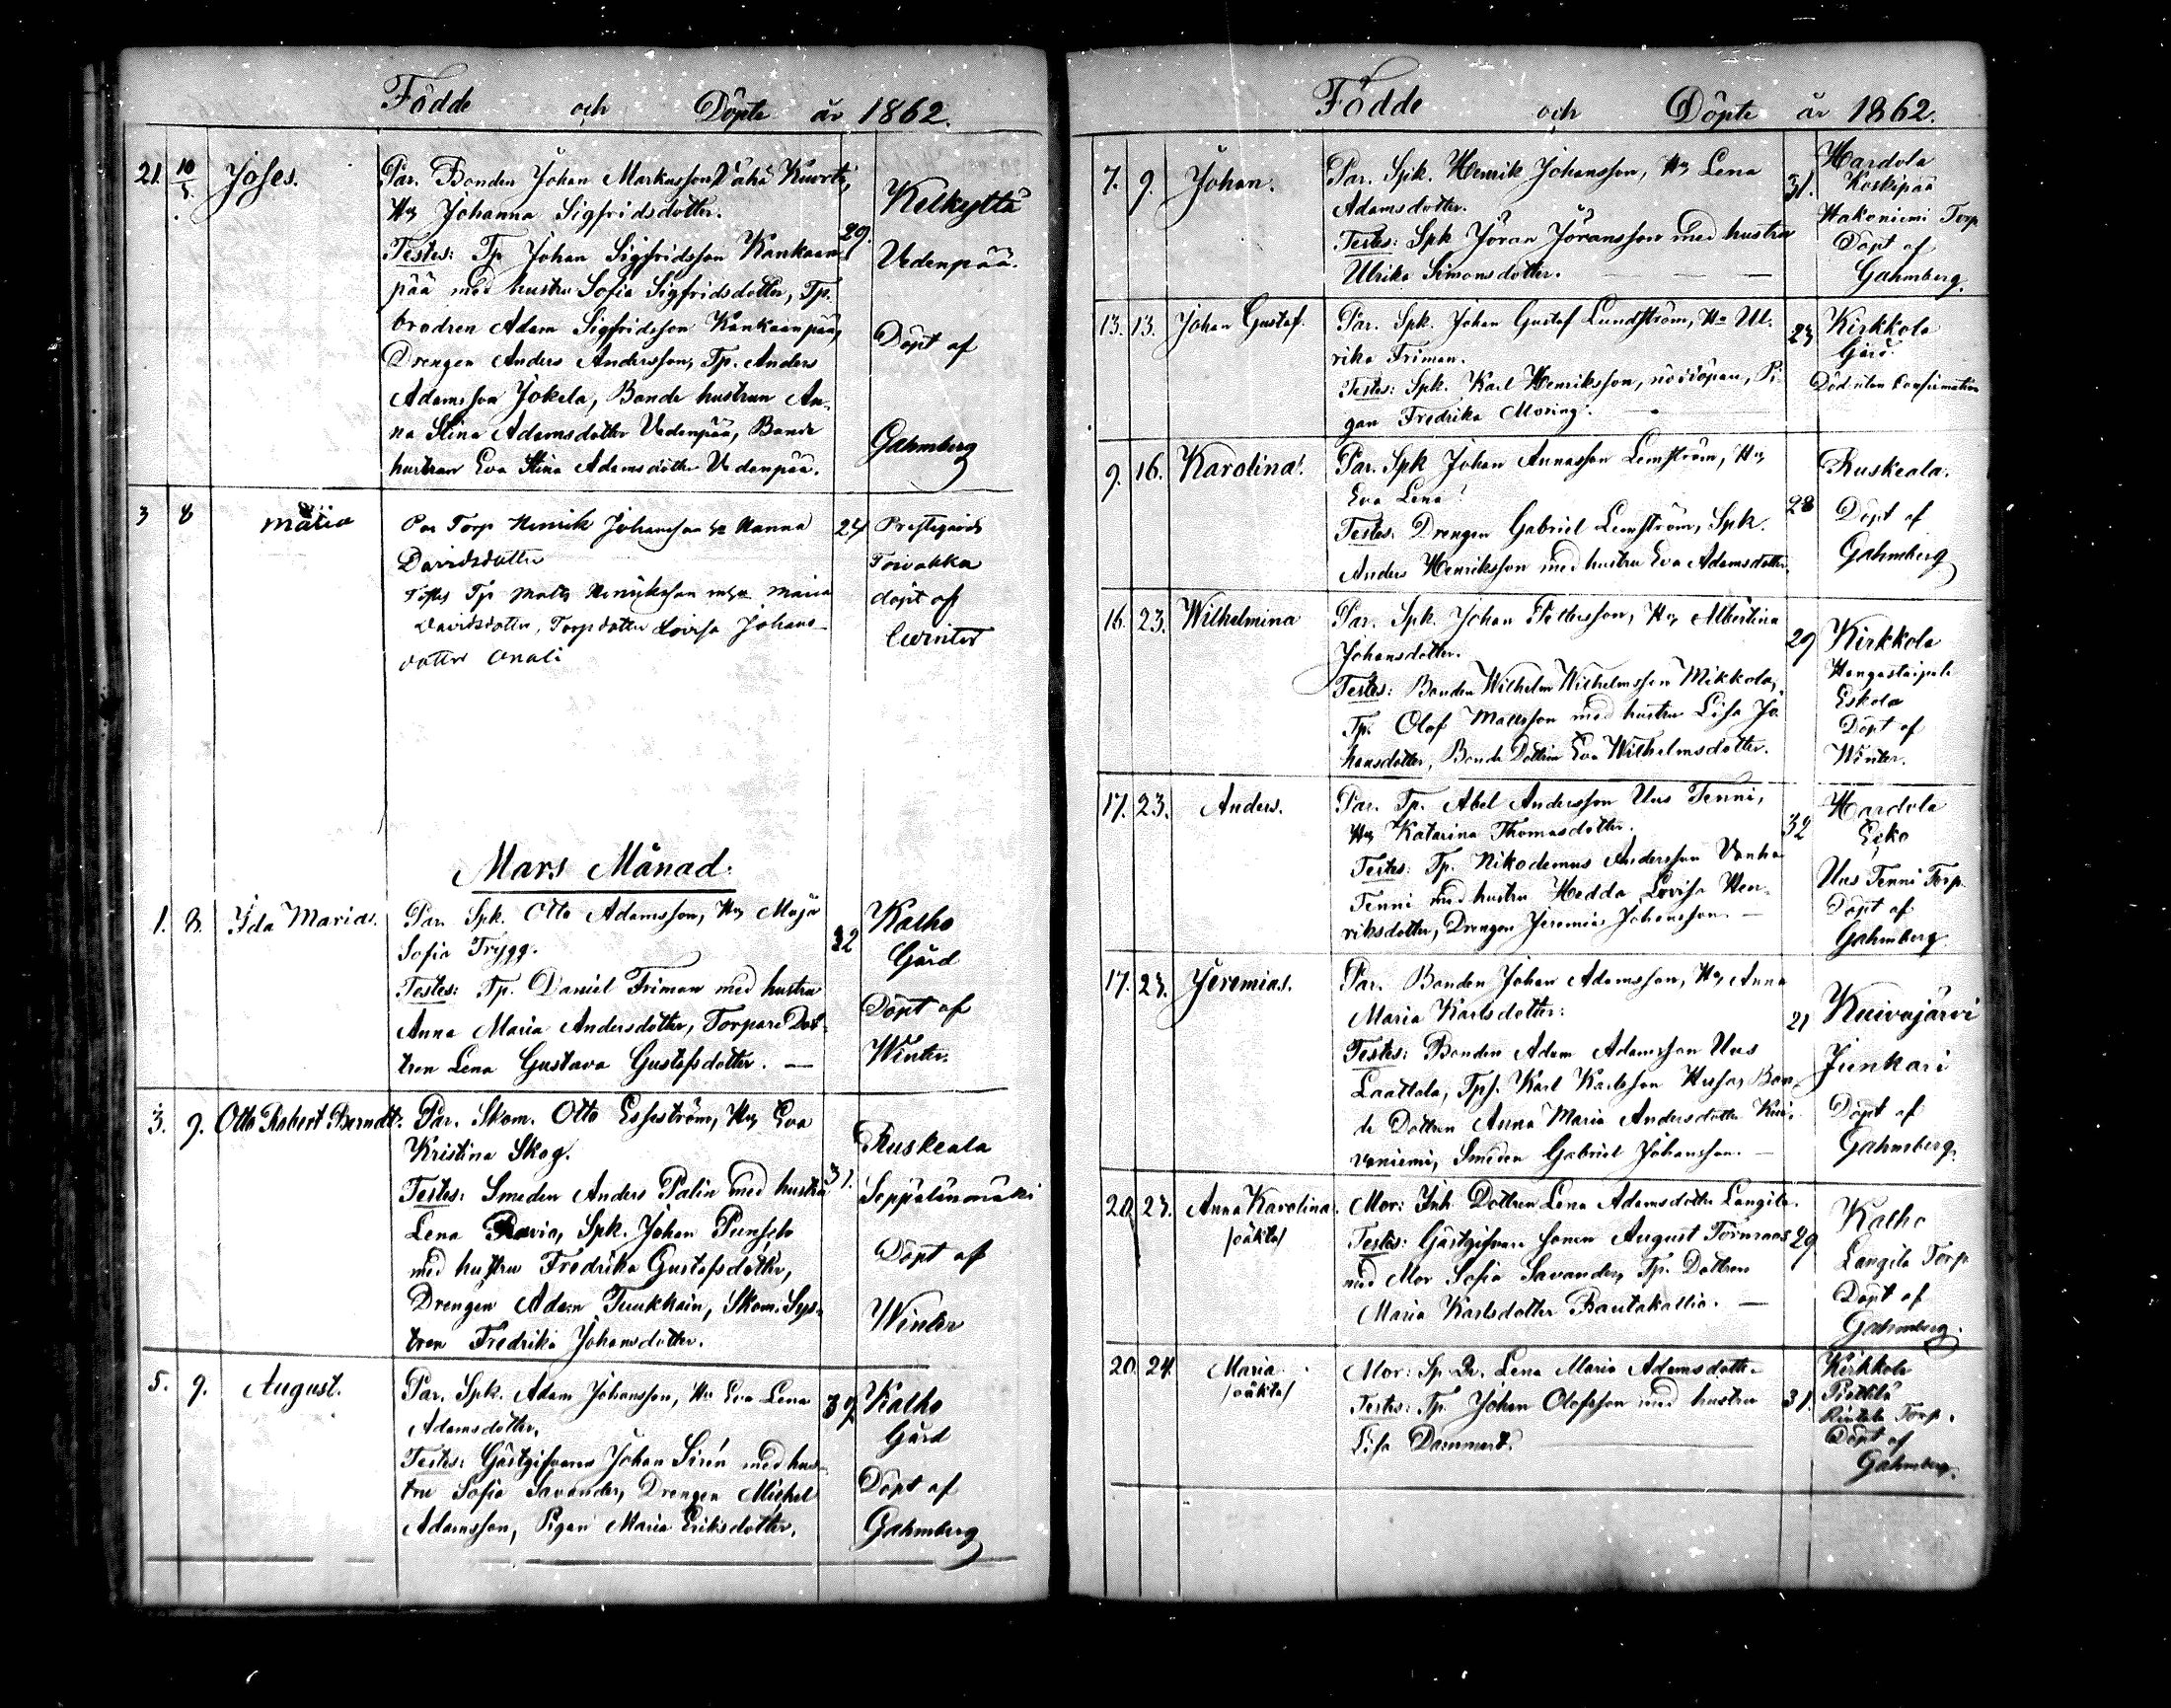 Födde och Döpte år 1862.
21. 10/3. Joses. Par. Bonden Johan Markusson Vähä Kuvorti,
Hu Johanna Sigfridsdotter. 29. Kelkyttä
Testes: Tp. Johan Sigfridsson Kankaan- Vedenpää.
pää med hustru Sofia Sigfridsdotter, Tp.
brodren Adam Sigfridsson Kankaanpää, Döpt af
Drengen Anders Andersson, Tp. Anders
Adamsson Jokela, Bonde hustrun An-
na Stina Adamsdotter Vedenpää, Bonde Gahmberg
hustrun Eva Stina Adamsdotter Vedenpää.
3 8 Maria Par Torp Henrik Johansson Hu Hanna 24 Prestgårds
Davidsdotter Toivakka
Testes Tp Matts Henriksson m hu Maria döpt af
Davidsdotter, Torpdotter Lovisa Johans- Winter
dotter Anali
Mars Månad.
1. 8. Ida Maria. Par. Spk. Otto Adamsson, Hu Maja 32 Kalho
Sofia Trygg. Gård
Testes: Tp. Daniel Friman med hustru Döpt af
Anna Maria Andersdotter, Torpare Dot-
tren Lena Gustava Gustafsdotter. — Winter.
3. 9. Otto Robert Berndt. Par. Skom. Otto Esseström, Hu Eva
Kristina Skog. Ruskeala
Testes: Smeden Anders Palin med hustru 31. Seppälänmäki
Lena Ravia, Spk. Johan Punsch
med hustru Fredrika Gustafsdotter, Döpt af
Drengen Adam Tuukkain, Skom. Sys-
tren Fredrika Johansdotter. Winter
5. 9. August. Par. Spk. Adam Johansson, Hu Eva Lena 39 Kalho
Adamsdotter. Gård
Testes: Gästgifvaren Johan Sirén med hus-
tru Sofia Savander, Drengen Michel Döpt af
Adamsson, Pigan Maria Eriksdotter. Gahmberg
Födde och Döpte år 1862.
7. 9. Johan. Par. Spk. Henrik Johansson, Hu Lena 31. Hardola
Adamsdotter. Koskipää
Testes: Spk Jöran Jöransson med hustru Hakoniemi Torp
Ulrika Simonsdotter. — — Döpt af
Gahmberg.
13. 13. Johan Gustaf. Par. Spk. Johan Gustaf Lundström, Hu Ul- 23 Kirkkola
rika Friman. Gård.
Testes: Spk. Karl Henriksson, nöddopan, Pi- Död utan Confirmation
gan Fredrika Moring. —
9. 16. Karolina. Par. Spk Johan Annasson Lemström, Hu Ruskeala.
Eva Lena. 28
Testes: Drengen Gabriel Lemström, Spk. Döpt af
Anders Henriksson med hustru Eva Adamsdotter. Gahmberg
16. 23. Wilhelmina Par. Spk. Johan Pettersson, Hu Albertina 29 Kirkkola
Johansdotter. Hangastaipale
Testes: Bonden Wilhelm Wilhelmsson Mikkola, Eskola
Tp. Olof Mattsson med hustru Lisa Jo- Döpt af
hansdotter, Bonde Dottren Eva Wilhelmsdotter. Winter.
17. 23. Anders. Par. Tp. Abel Andersson Uus Tenni, 32 Hardola
Hu Katarina Thomasdotter. Eko
Testes: Tp. Nikodemus Andersson Vanha Uus Tenni Torp.
Tenni med hustru Hedda Lovisa Hen- Döpt af
riksdotter, Drengen Jeremias Johansson. — Gahmberg
17. 23. Jeremias. Par. Bonden Johan Adamsson, Hu Anna 21 Kuivajärvi
Maria Karlsdotter.
Testes: Bonden Adam Adamsson Uus Junkari
Laattala, Tps. Karl Karlsson Husa, Bon-
de Dottren Anna Maria Andersdotter Kui- Döpt af
vaniemi, Smeden Gabriel Johansson. — Gahmberg
20. 23. Anna Karolina. Mor: Inh. Dottren Lena Adamsdotter Langila. Kalho
/oäkta/ Testes: Gästgifvare sonen August Törnroos 29 Langila Torp
med Mor Sofia Savander, Tp. Dottren Döpt af
Maria Karlsdotter Rautakallio. — Gahmberg.
20. 24. Maria. Mor: Sp. Lena Maria Adamsdotter Kirkkola
/oäkta/ Testes: Tp. Johan Olofsson med hustru 31. Pietilä
Lisa Dammert. — Torp.
Döpt af
Gahmberg.